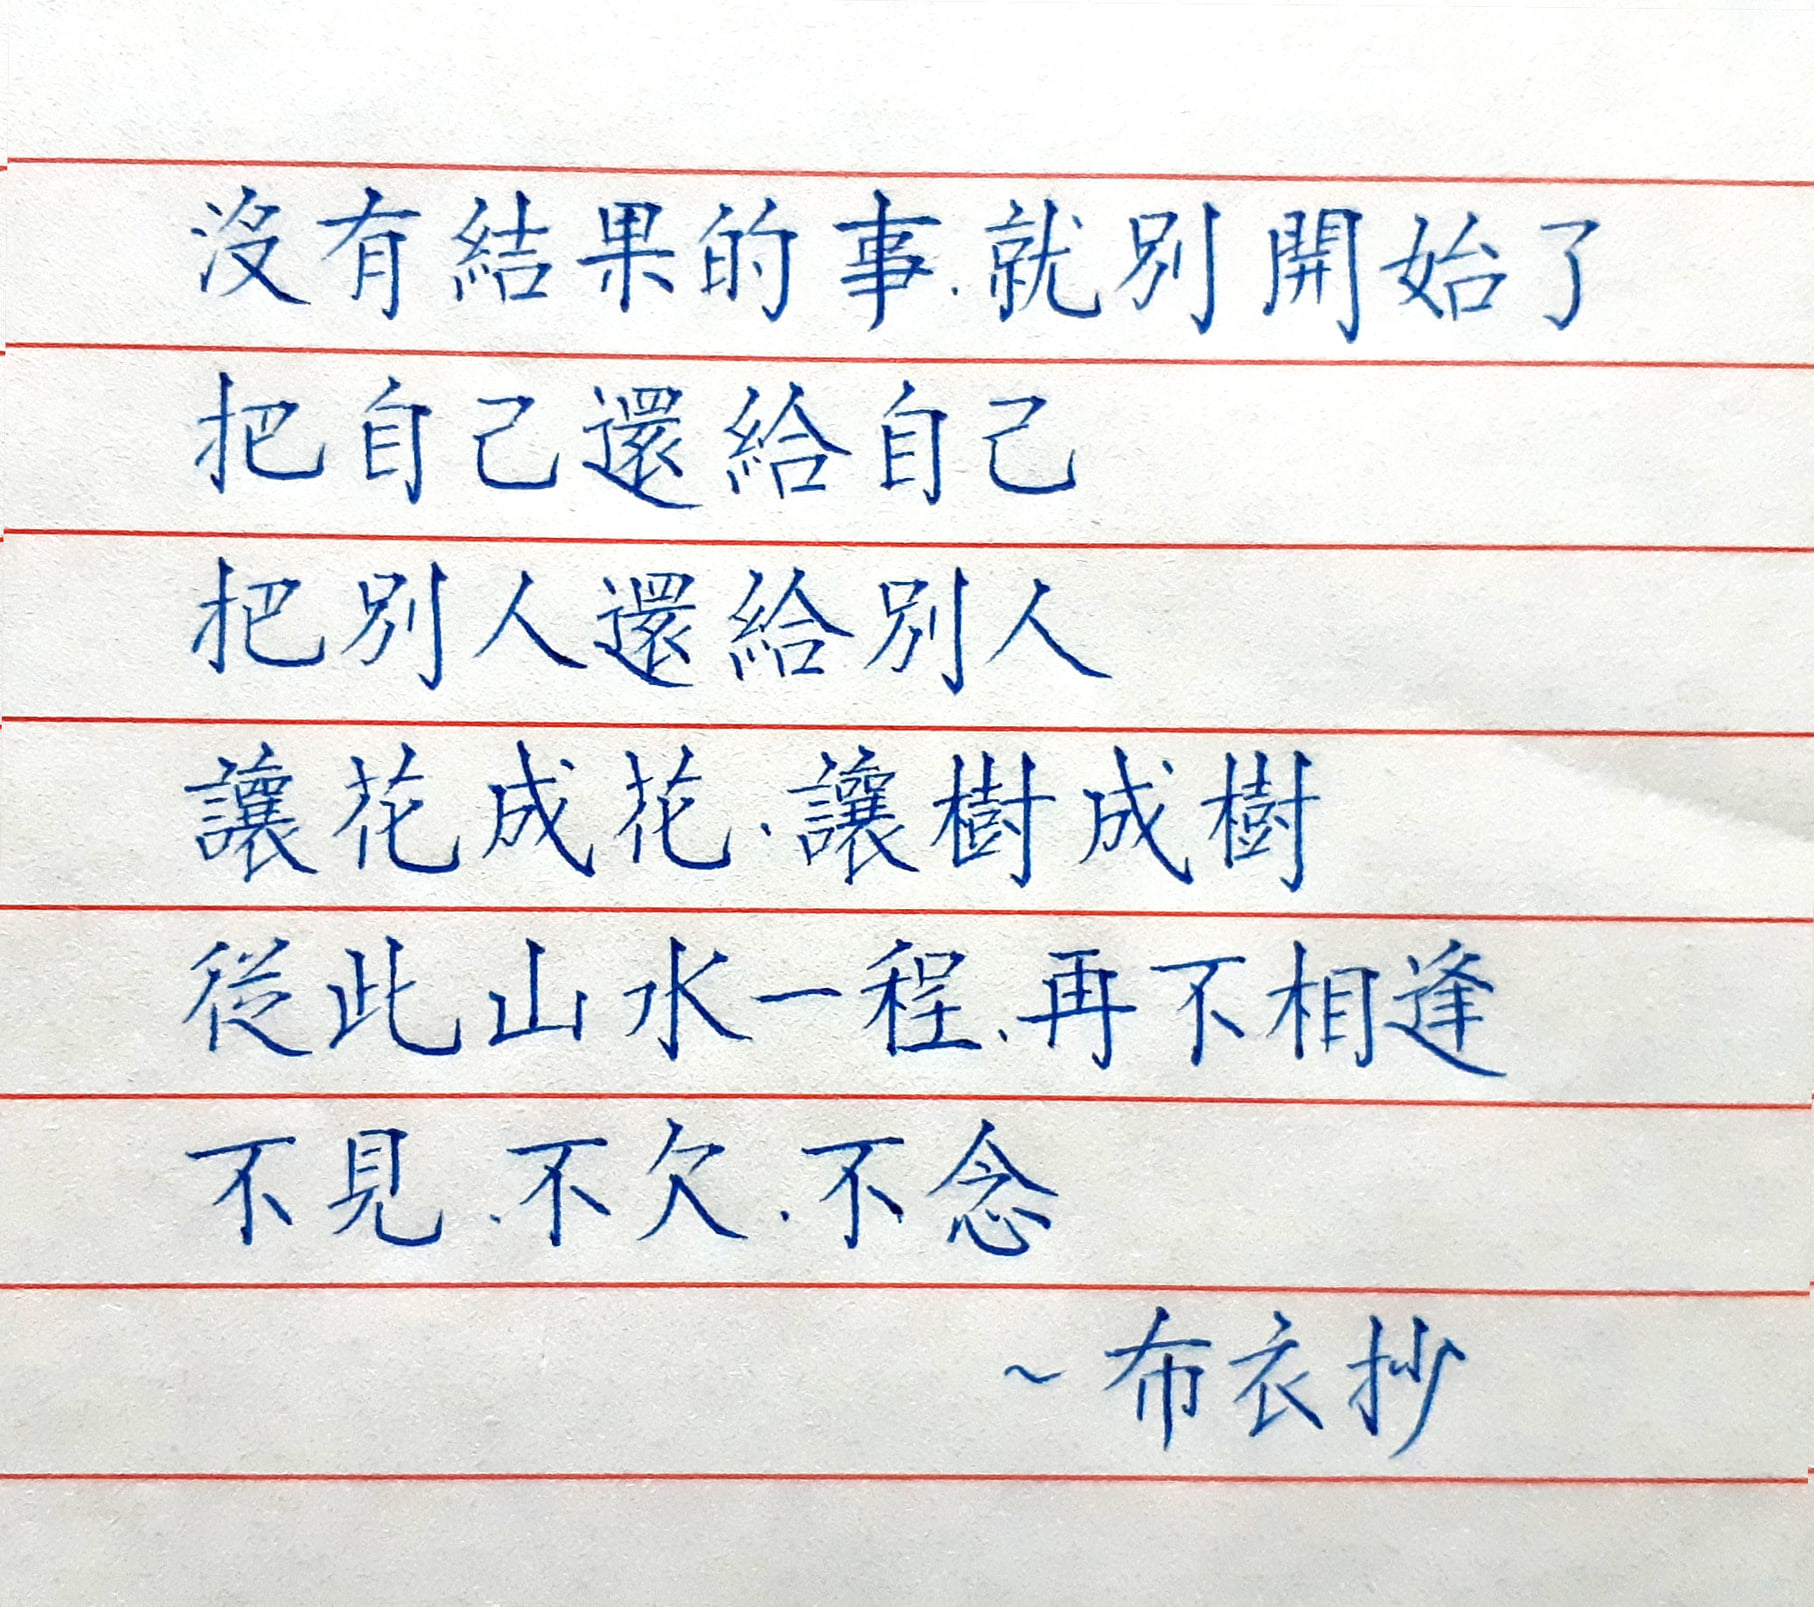 沒有結果的事.就別開始了
把自己還給自己
把別人還給別人
讓花成花.讓樹成樹
從此山水一程.再不相逢
不見.不欠.不念
~布衣抄